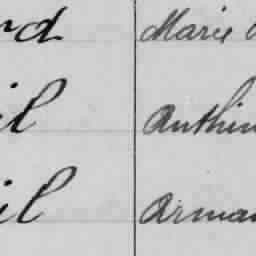 rd Marie
il Anthim
il Arman